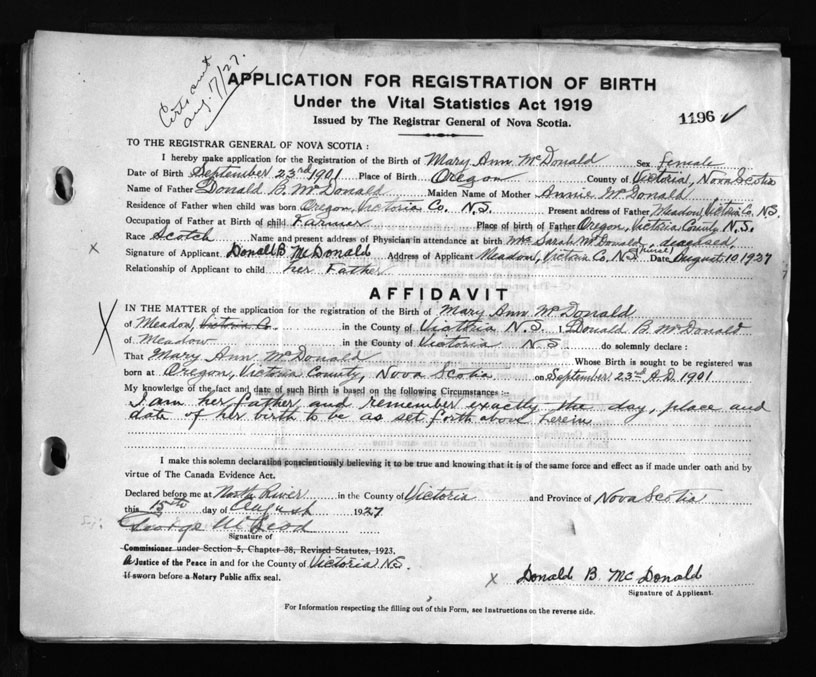 Certs sent
Aug. 17/27.
APPLICATION FOR REGISTRATION OF BIRTH
Under the Vital Statistics Act 1919
Issued by The Registrar General of Nova Scotia.
1196 ✓
TO THE REGISTRAR GENERAL OF NOVA SCOTIA :
I hereby make application for the Registration of the Birth of Mary Ann McDonald Sex female
Date of Birth September 23rd 1901 Place of Birth Oregon County of Victoria, Nova Scotia
Name of Father Donald B. McDonald Maiden Name of Mother Annie McDonald
Residence of Father when child was born Oregon, Victoria Co. N.S. Present address of Father Meadow, Victoria Co. N.S.
Occupation of Father at Birth of child Farmer Place of birth of Father Oregon, Victoria County, N.S.
Race Scotch Name and present address of Physician in attendance at birth Mrs Sarah McDonald, deceased,
(nurse)
x Signature of Applicant. Donald B. McDonald Address of Applicant Meadow, Victoria Co. N.S. Date August 10, 1927
Relationship of Applicant to child her Father
AFFIDAVIT
X IN THE MATTER of the application for the registration of the Birth of Mary Ann McDonald
of Meadow, Victoria Co. in the County of Victoria N.S. I Donald B. McDonald
of Meadow in the County of Victoria N S. do solemnly declare :
That Mary Ann McDonald Whose Birth is sought to be registered was
born at Oregon, Victoria County, Nova Scotia on September 23rd A.D. 1901
My knowledge of the fact and date of such Birth is based on the following Circumstances :-
I am her father, and remember exactly the day, place and
date of her birth to be as set forth above herein
I make this solemn declaration conscientiously believing it to be true and knowing that it is of the same force and effect as if made under oath and by
virtue of The Canada Evidence Act.
Declared before me at North River in the County of Victoria and Province of Nova Scotia
this 15th day of August 1927
George McLeod
Signature of
Commissioner under Section 5, Chapter 38, Revised Statutes, 1923.
A Justice of the Peace in and for the County of Victoria N.S.
If sworn before a Notary Public affix seal.
x Donald B. McDonald
Signature of Applicant.
For Information respecting the filling out of this Form, see Instructions on the reverse side.